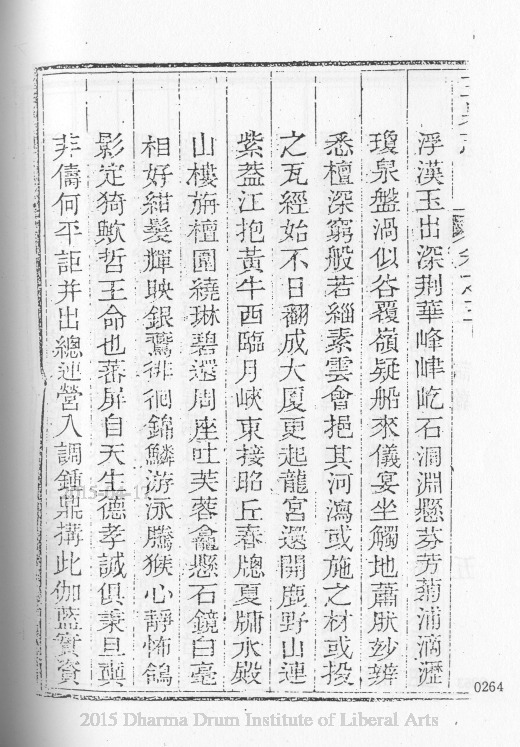 浮漢玉出深荆華峰崨屹石洞淵懸芬芳菊浦滴瀝
瓊泉盤渦似谷覆嶺疑船來儀宴坐觸地蕭然妙辨
悉檀深窮般若緇素雲會挹其河瀉或施之材或投
之瓦經始不日翻成大厦更起龍宮還開鹿野山連
紫蓋江抱黃牛西臨月峽東接昭丘春牕夏牖水殿
山樓旃檀圍繞琳碧還周座吐芙蓉龕懸石鏡白毫
相好紺髮輝映銀鸎徘徊錦鱗游泳騰猴心靜怖鴿
影定猗歟哲王命也蕃屏自天生德孝誠俱秉旦奭
非儔何平詎并出總連營入調鍾鼎搆此伽藍實資
0264
2015 Dharma Drum Institute of Liberal Arts